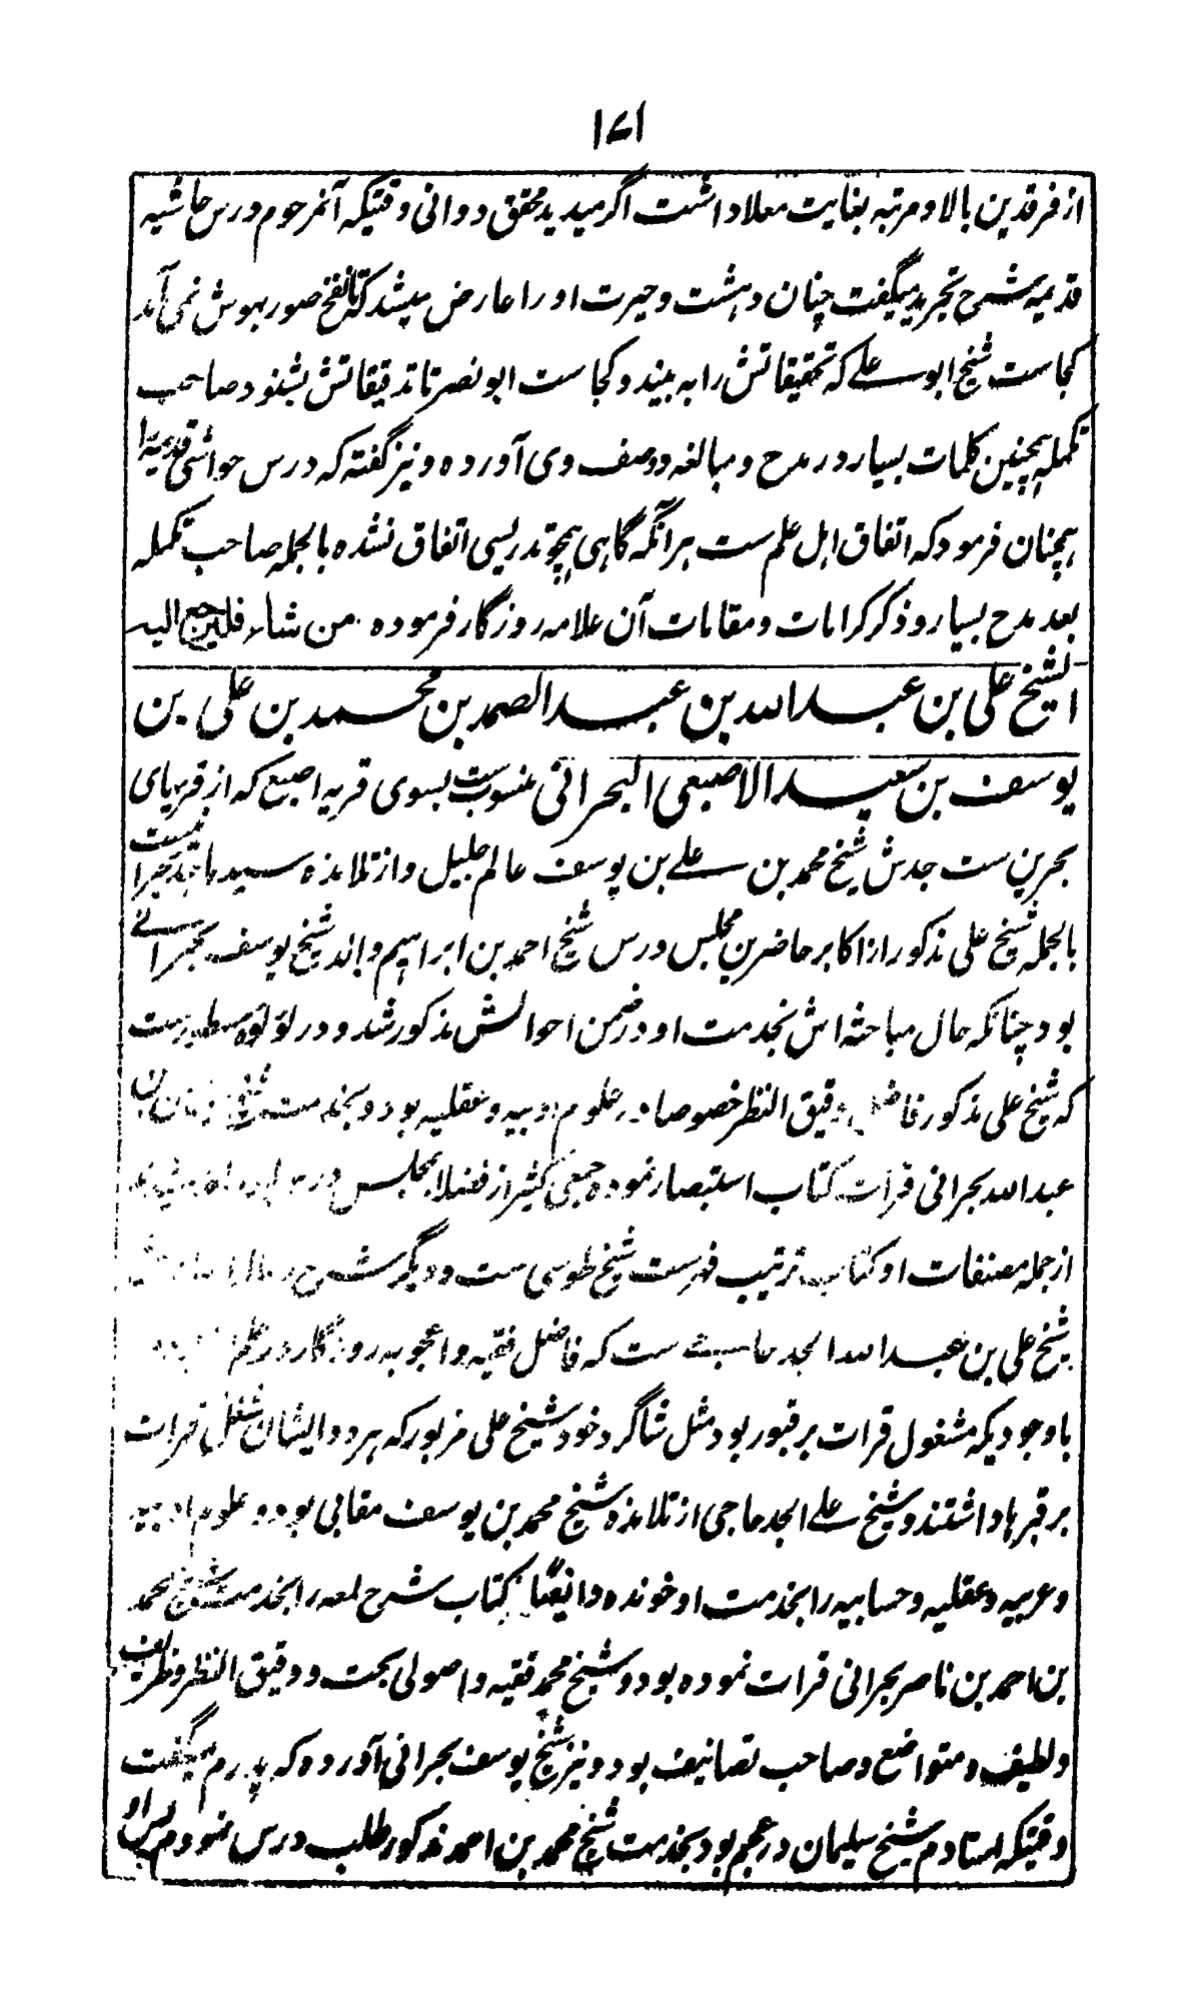 ۱۷۱
از فرقدین بالا و مرتبہ بغایت معلا داشت اگر میدید محقق دوانی وقتیکہ آنمرحوم درس حاشیہ
قدیمہ شرح تجرید میگفت چنان دہشت و حیرت او را عارض میشد کہ تا نفخ صور بہوش نمی آمد
کجاست شیخ ابو علے کہ تحقیقاتش را بہ بیند و کجاست ابو نصر تا تدقیقاتش بشنود صاحب
تکملہ ہمچنین کلمات بسیار در مدح و مبالغہ وصف وی آوردہ و نیز گفتہ کہ درس حواشی قدیمہ را
ہمچنان فرمود کہ اتفاق اہل علم ست ہر آنکہ گاہی ہمچو تدریسی اتفاق نشدہ بالجملہ صاحب تکملہ
بعد مدح بسیار و ذکر کرامات و مقامات آن علامہ روزگار فرمودہ من شاء فلیرجع الیہ
الشیخ علی بن عبد اللہ بن عبد الصمد بن محمد بن علی بن
یوسف بن سعید الاصبعی البحرانی منسوبست بسوی قریہ اصبع کہ از قریہای
بحرین ست جدش شیخ محمد بن علے بن یوسف عالم جلیل و از تلامذہ سید ماجد بحرانیست
بالجملہ شیخ علی مذکور از اکابر حاضرین مجلس درس شیخ احمد بن ابراہیم والد شیخ یوسف بحرانے
بود چنانکہ حال مباحثہ اش بخدمت او در ضمن احوالش مذکور شد و در لؤلؤہ مسطورست
کہ شیخ علی مذکور فاضل دقیق النظر خصوصا در علوم ادبیہ و عقلیہ بود و بخدمت شیخ بن
عبد اللہ بحرانی قرات کتاب استبصار نمودہ جمعی کثیر از فضلا بمجلس درس
از جملہ مصنفات او کتاب ترتیب فہرست شیخ طوسی ست و دیگر شرح
شیخ علی بن عبد اللہ الجد حاجی ست کہ فاضل فقیہ و اعجوبہ روزگار در علم
باوجودیکہ مشغول قرات بر قبور بود مثل شاگرد خود شیخ علی مزبور کہ ہر دو ایشان شغل قرات
بر قبرہا داشتند و شیخ علے الجد حاجی از تلامذہ شیخ محمد بن یوسف مقابی بود و علوم ادبیہ
و عربیہ و عقلیہ و حسابیہ را بخدمت او خواندہ و ایضا کتاب شرح لمعہ را بخدمت شیخ محمد
بن احمد بن ناصر بحرانی قرات نمودہ بود و شیخ محمد فقیہ و اصولی بحت و دقیق النظر و ظریف
و لطیف و متواضع و صاحب تصانیف بود و نیز شیخ یوسف بحرانی آوردہ کہ پدرم میگفت
وقتیکہ استادم شیخ سلیمان در عجم بود بخدمت شیخ محمد بن احمد مذکور طلب درس نمودم پس او